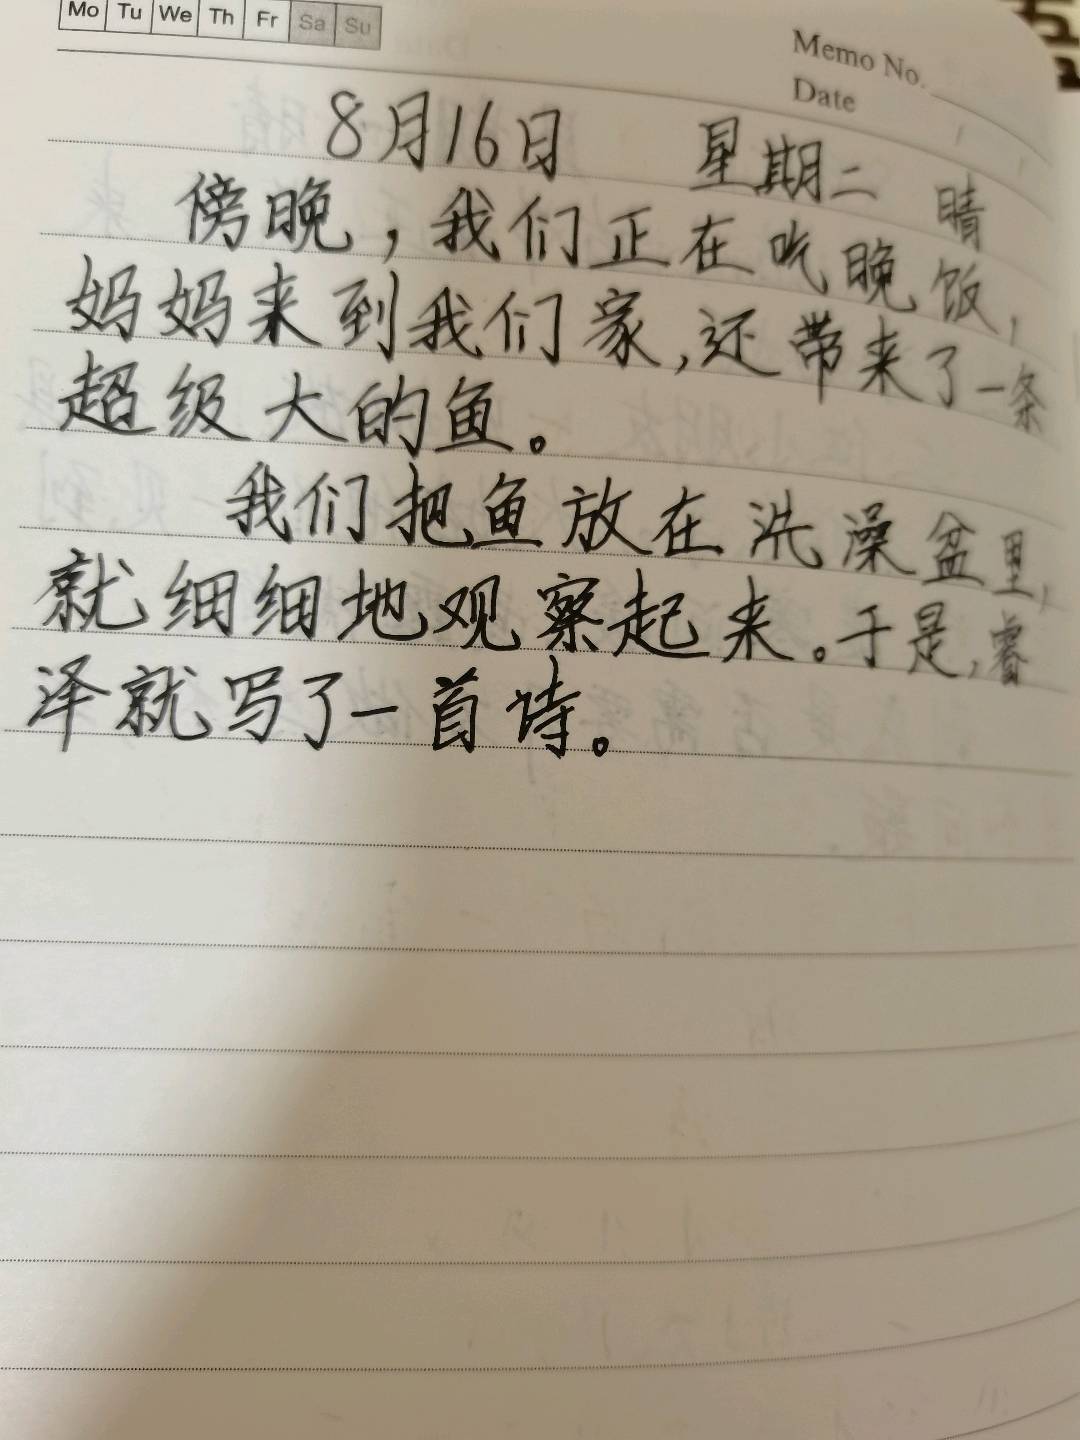 Mo Tu We Th Fr Sa Su
Memo No.
Date
8月16日 星期二 晴
傍晚，我们正在吃晚饭，
妈妈来到我们家，还带来了一条
超级大的鱼。
我们把鱼放在洗澡盆里，
就细细地观察起来。于是，睿
泽就写了一首诗。